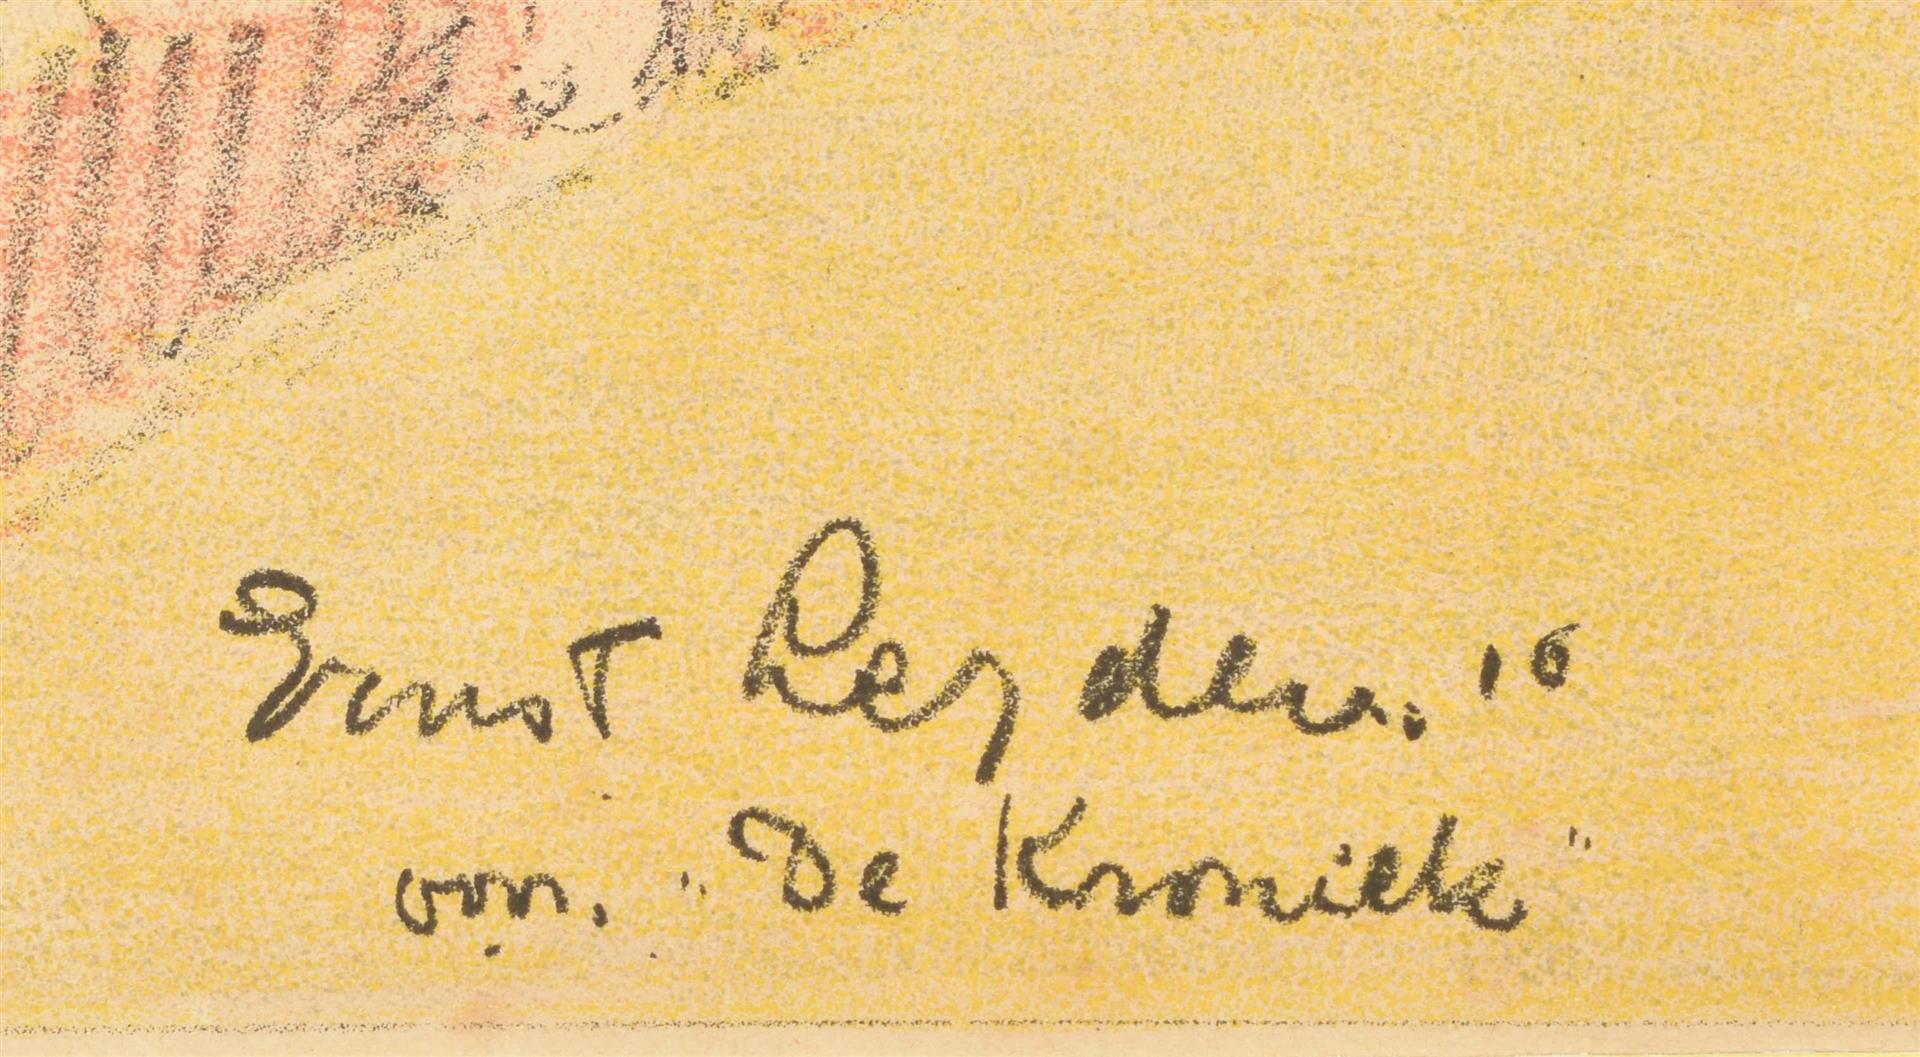 Ernst Leyden. '16
voor. "De Kroniek"